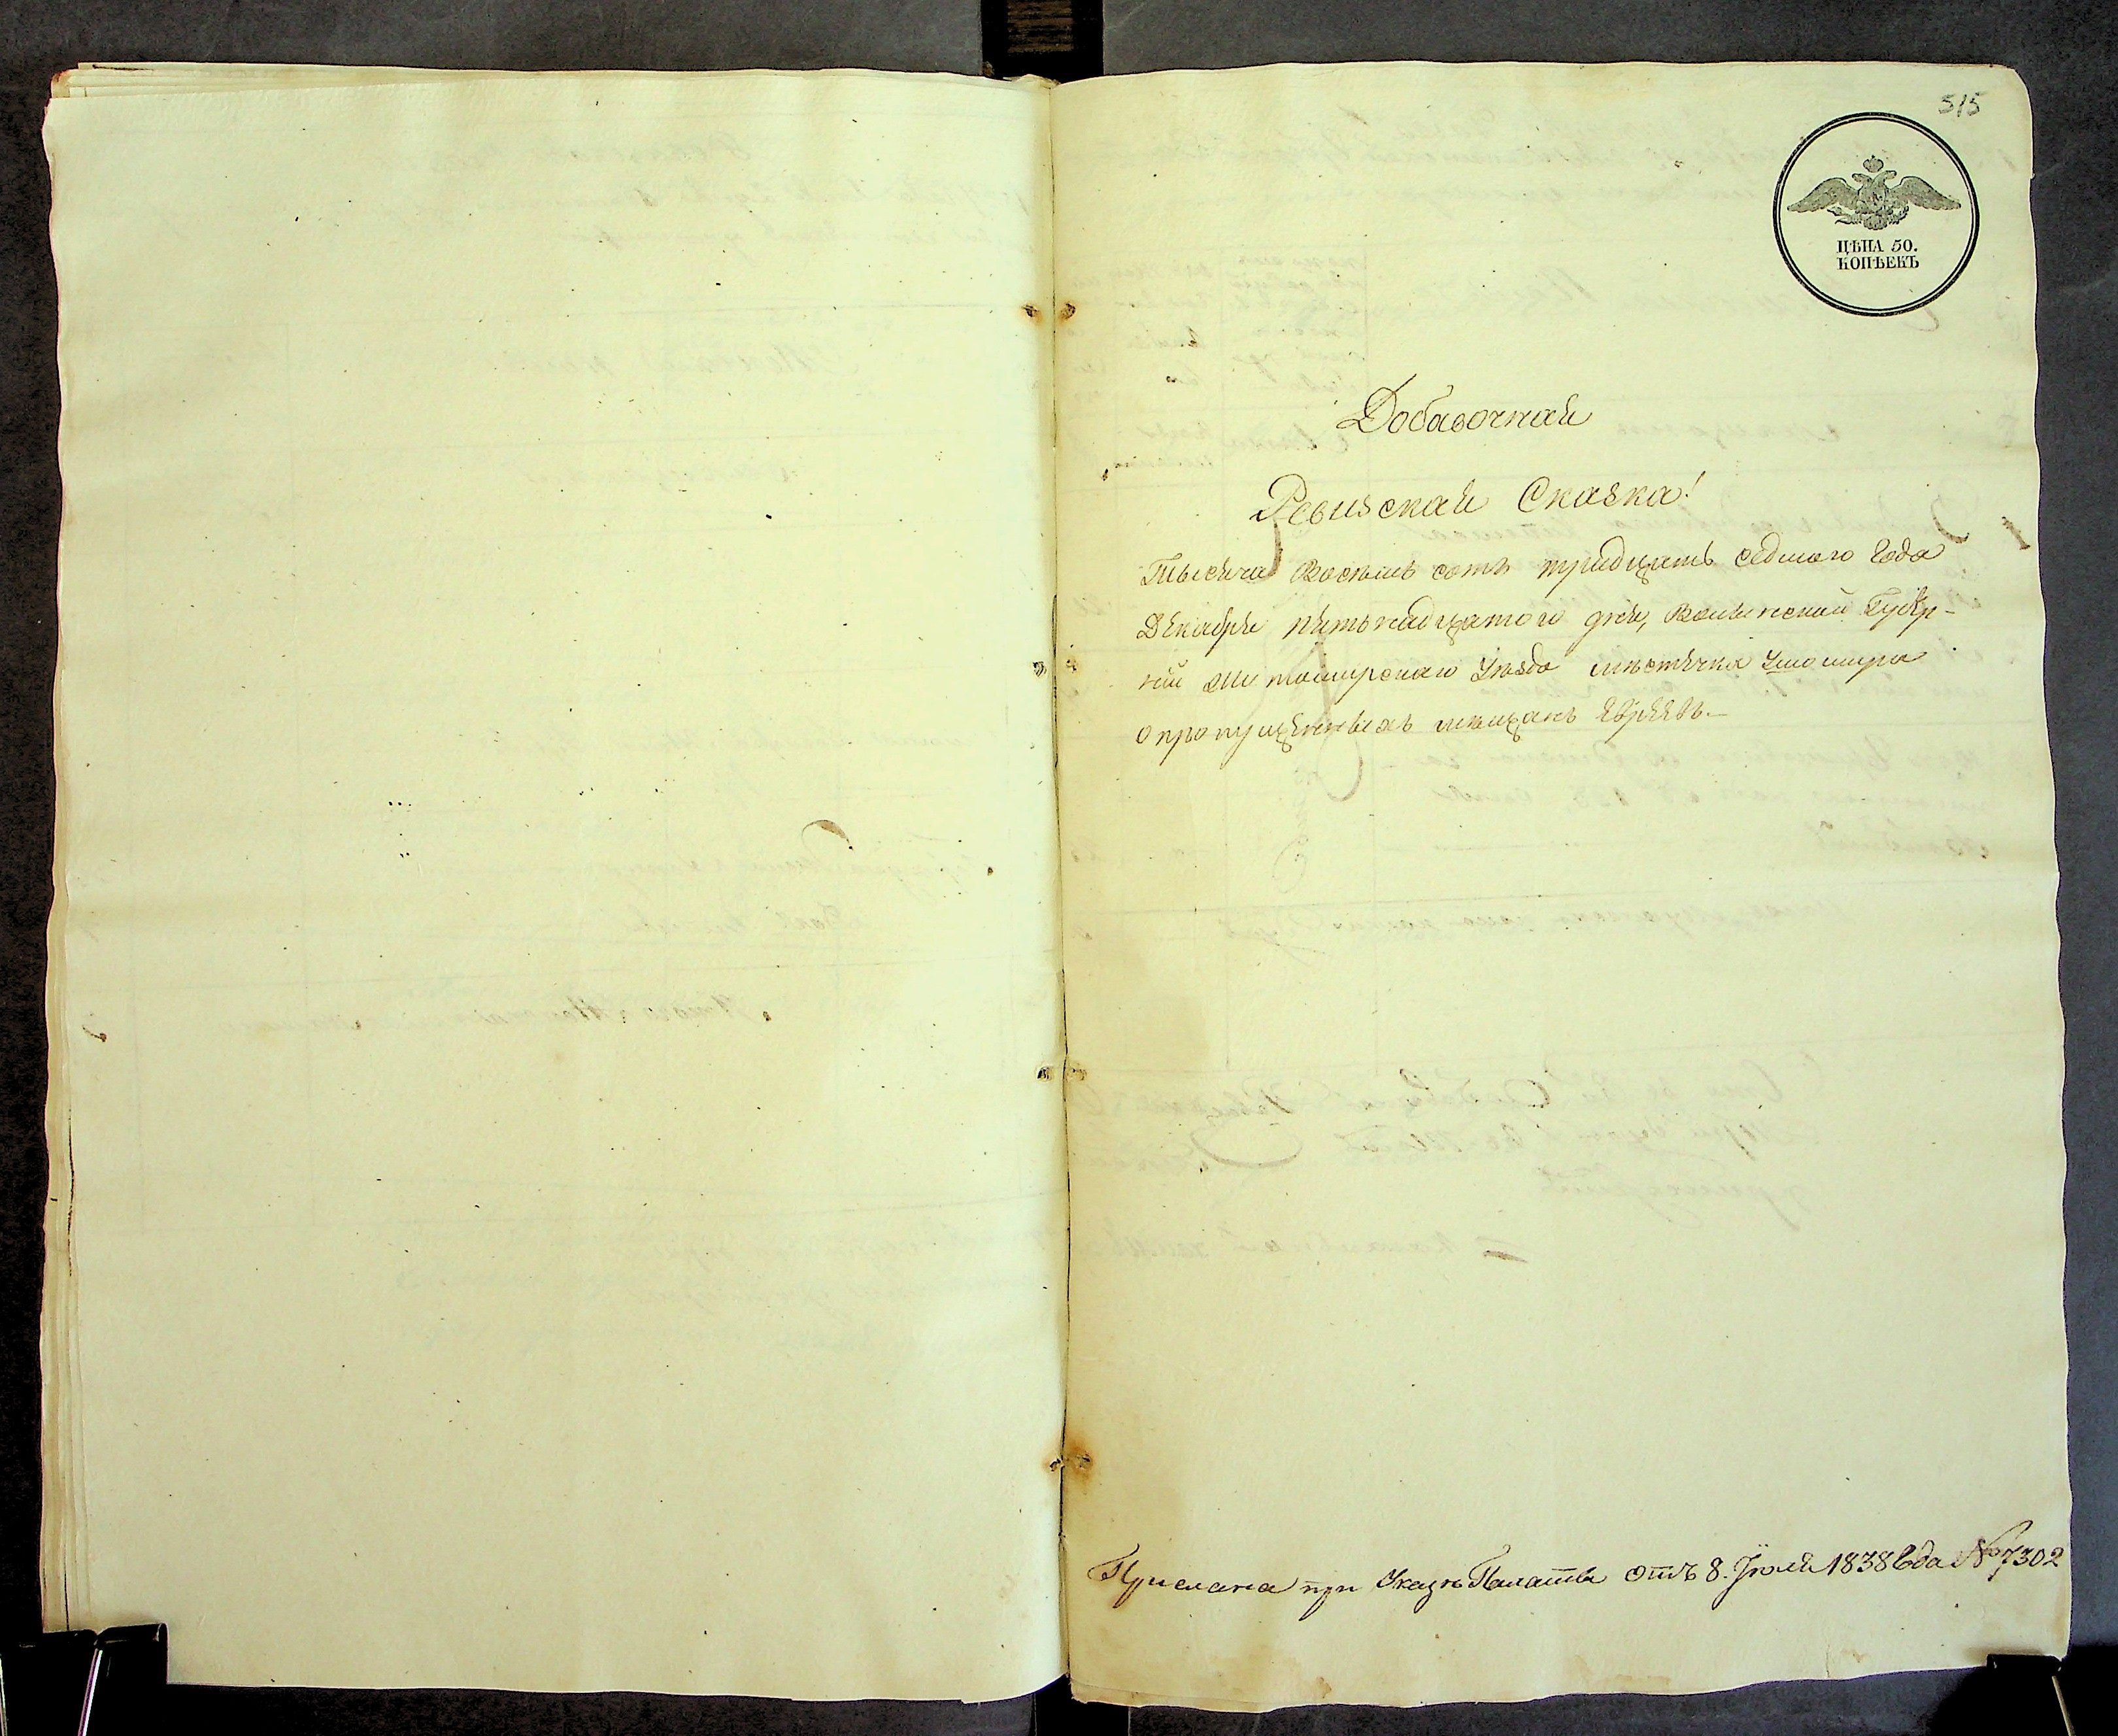 515
ЦѢНА 50.
КОПѢЕКЪ
Добавочная
Ревизская Сказка!
Тысяча восемь сотъ тридцать седмого года
Декабря пятьнадцатого дня, Волынской Губер-
нiи Житомирскаго Уѣзда мѣстечка Ушомира
о пропущенныхъ мѣщанъ Евреевъ.—
Прислана при Указѣ Палаты отъ 8. Iюля 1838 года № 7302